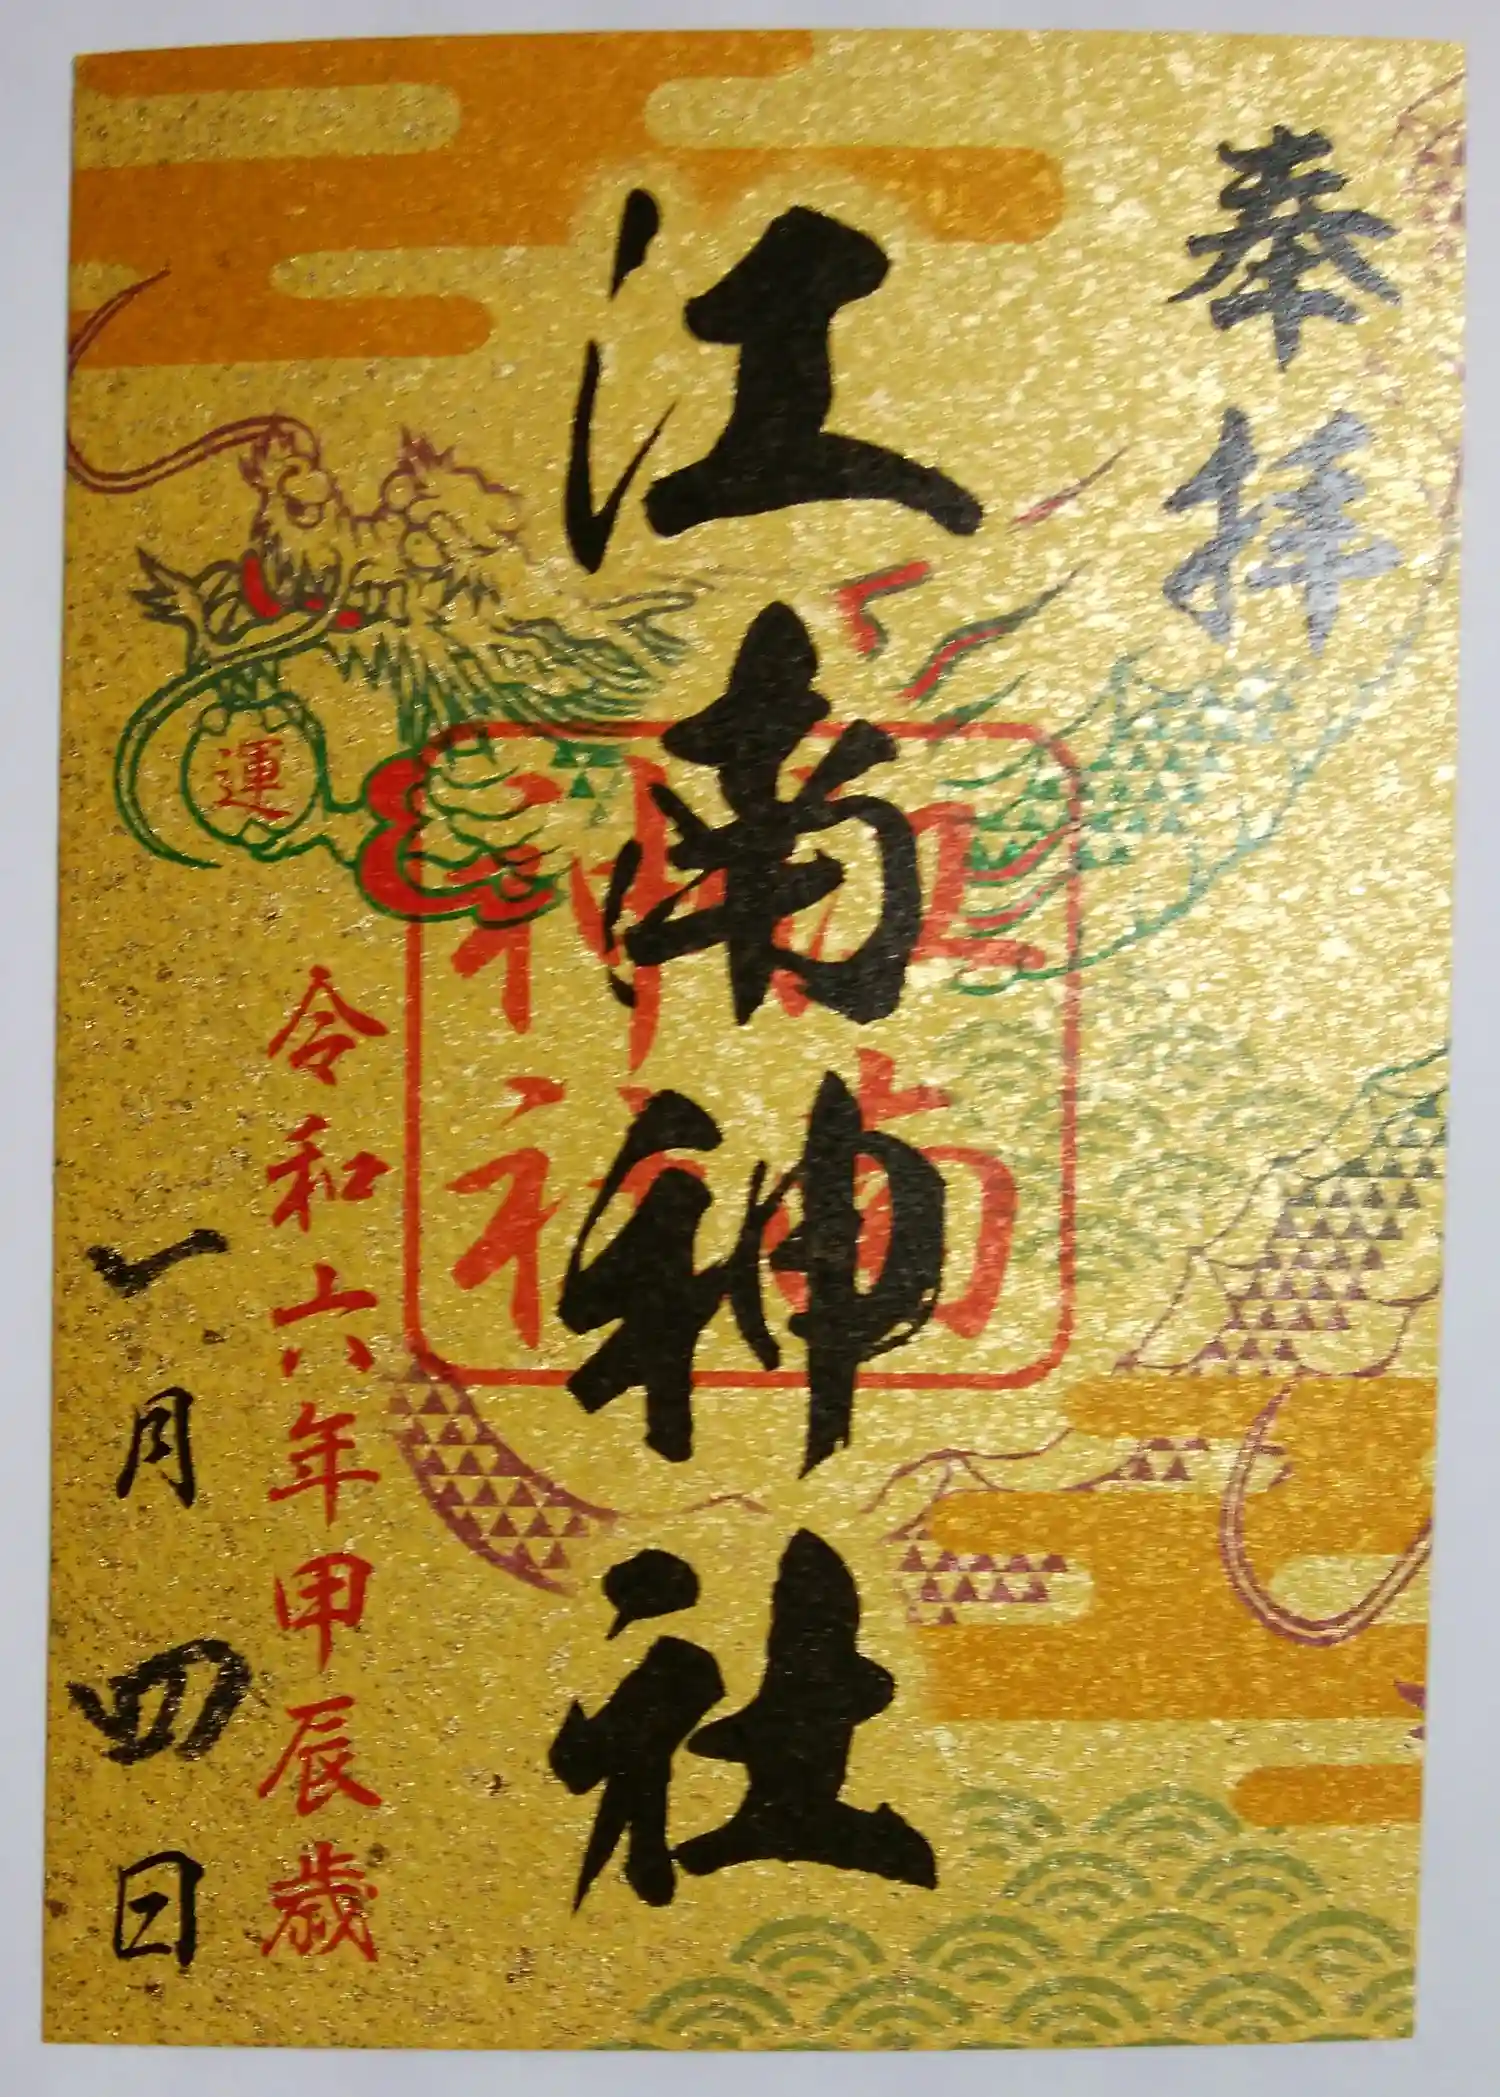 奉拝
江南神社
江南
神社
運
令和六年甲辰歳
一月四日